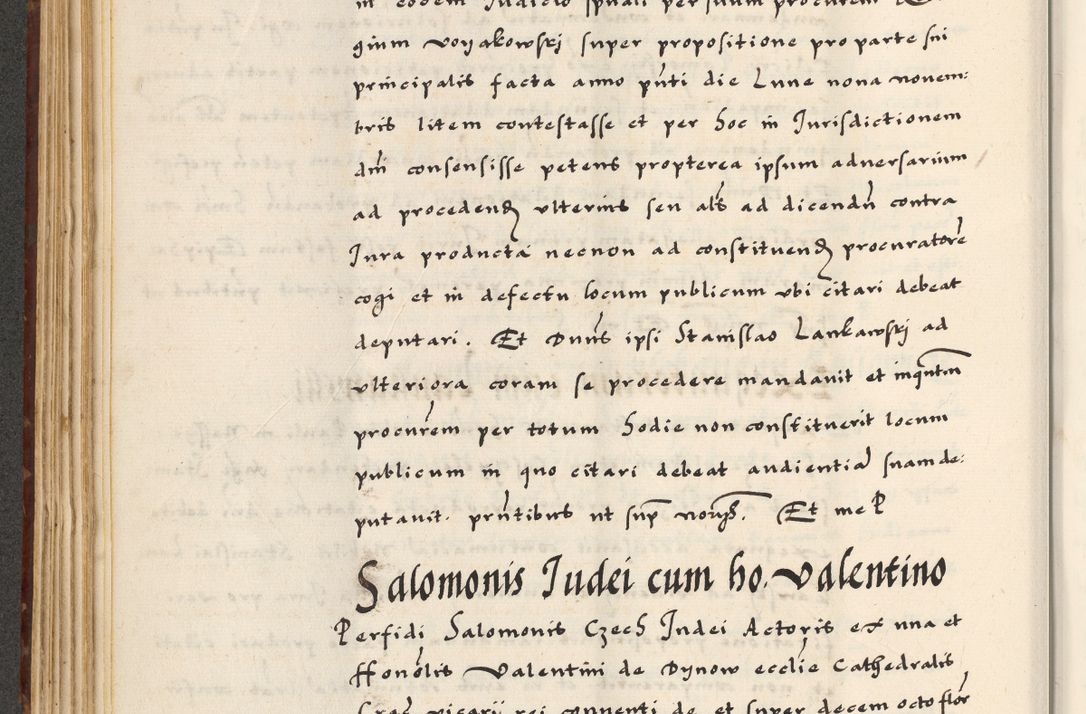 in eodem Iudicio spũali per suum procurem
gium Voyakowskj super propositione pro parte sui
principalis facta anno pñti die Lune nona novem:
bris litem contestasse et per hoc in Jurisdictionem
dñi consensisse petens propterea ipsum adversarium
ad procedend ulterius seu als ad dicendũ contra
Iura producta necnon ad constituend procuratorẽ
cogi et in defectu locum publicum ubi citari debeat
deputari. Et Dnus ipsi Stanislao Lankawskj ad
ulteriora coram se procedere mandavit et inquntm
procurẽm per totum hodie non constituerit locum
publicum in quo citari debeat audientia suam de:
putavit. pñtibus ut sup. Et me P
Salomonis Iudei cum ho. Valentino
Perfidi Salomonis Czech Iudei Actoris ex una et
Honõlis Valentini de Dynow ecclie Cathedralis
Crac vicarii rei conventi de et super decem octo flor